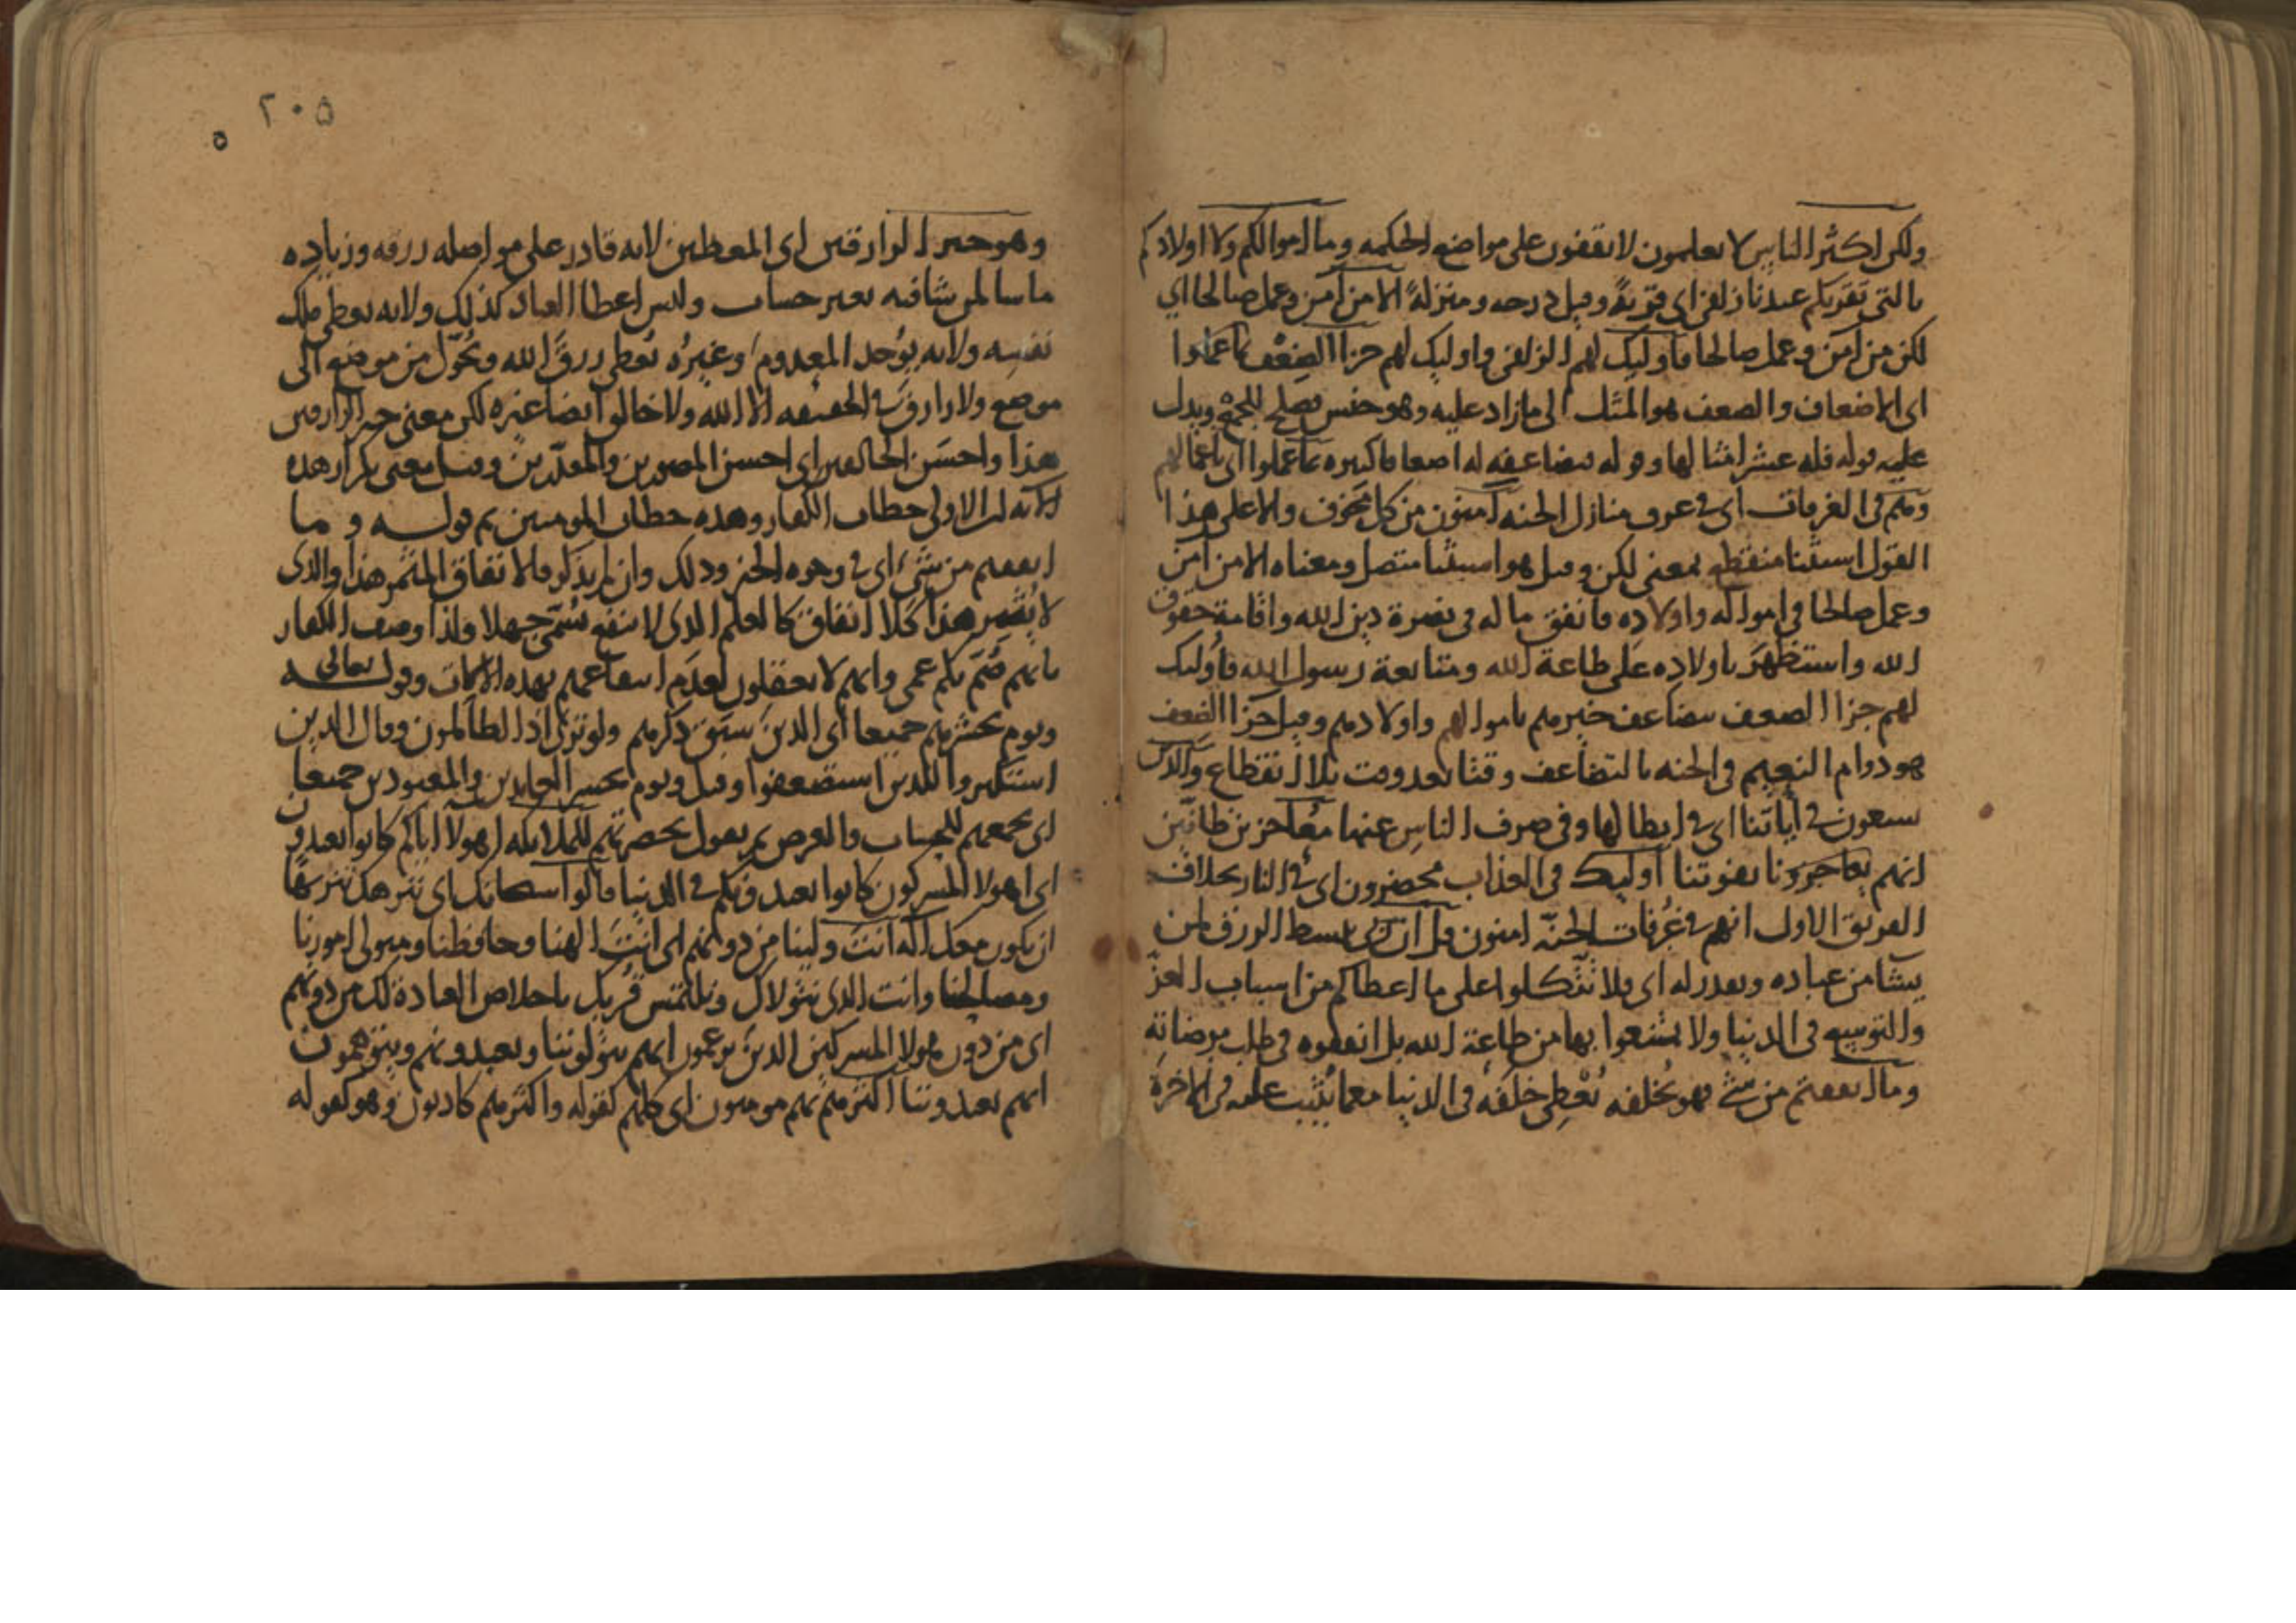 ولكن اكثر الناس لا يعلمون لا يقفون على مواضع الحكمه وما اموالكم ولا اولادكم
بالتي تقربكم عندنا زلفى اى قربة وقيل درجه ومنزلة الا من آمن وعمل صالحا اي
لكن من آمن وعمل صالحا فاوليك لهم الزلفى واوليك لهم جزا الضعف بما عملوا
اى الاضعاف والضعف هو المثل الى ما زاد عليه وهو جنس يصلح للجمع ويدل
عليه قوله فله عشر امثالها وقوله فيضاعفه له اضعافا كثيره بما عملوا اى باعمالهم
وهم في الغرفات اى في غرف منازل الجنه آمنون من كل مخوف والا على هذا
القول استثنا منقطع بمعنى لكن وقيل هو استثنا متصل ومعناه الا من آمن
وعمل صالحا في امواله واولاده فانفق ماله في نصرة دين الله واقامة حقوق
الله واستظهر باولاده على طاعة الله ومتابعة رسول الله فاوليك
لهم جزا الضعف يضاعف خيرهم باموالهم واولادهم وقيل جزا الضعف
هو دوام النعيم في الجنه بالتضاعف وقتا بعد وقت بلا انقطاع والذين
يسعون في آياتنا اى في ابطالها وفي صرف الناس عنها معاجزين ظانين
انهم يعاجزوننا بفوتنا اوليك في العذاب محضرون اى في النار بخلاف
الفريق الاول انهم في غرفات الجنه امنون قل ان ربى يبسط الرزق لمن
يشا من عباده ويقدر له اى فلا تتكلوا على ما اعطاكم من اسباب العز
والتوسع في الدنيا ولا تمتنعوا بها من طاعة الله بل انفقوه في طلب مرضاته
وما انفقتم من شي فهو يخلفه يعطى خلفه في الدنيا معما يثيب عليه في الاخرة
٢٠٥
وهو خير الرازقين اى المعطين لانه قادر على مواصله رزقه وزياده
ما يشا لمن يشا فيه بغير حساب وليس اعطا العباد كذلك ولانه يعطى ملك
نفسه ولانه يوجد المعدوم وغيره يعطى رزق الله ويحول من موضع الى
موضع ولا رازق في الحقيقه الا الله ولا خالق ايضا غيره لكن معنى خير الرازقين
هذا واحسن الخالقين اى احسن المصورين والمقدرين وقيل معنى تكرار هذه
الآيه ان الاولى خطاب الكفار وهذه خطاب المومنين ثم قوله وما
انفقتم من شيء اى في وجوه الخير وذلك وان لم يذكر فالانفاق المثمر هذا والذى
لا يثمر هذا كلا انفاق كالعلم الذى لا ينفع سمي جهلا ولذا وصف الكفار
بانهم صم بكم عمى وانهم لا يعقلون لعدم انتفاعهم بهذه الالات وقوله تعالى
ويوم يحشرهم جميعا اى الذين سبق ذكرهم ولو ترى اذ الظالمون وقال الذين
استكبروا للذين استضعفوا وقيل ويوم يحشر العابدين والمعبودين جميعا
اى يجمعهم للحساب والعرض ثم يقول بحضرتهم للملايكه اهولا اياكم كانوا يعبدون
اى اهولا المشركون كانوا يعبدونكم في الدنيا قالوا سبحانك اى ننزهك تنزيها
ان يكون معك اله انت ولينا من دونهم اى انت الهنا وحافظنا ومتولى امورنا
ومصالحنا وانت الذى نتولاك ونلتمس قربك باخلاص العباده لك من دونهم
اى من دون هولا المشركين الذين يزعمون انهم يتولوننا ونعبدونهم ويتوهمون
انهم يعبدوننا اكثرهم بهم مومنون اى كلهم كقوله واكثرهم كاذبون وهو كقوله